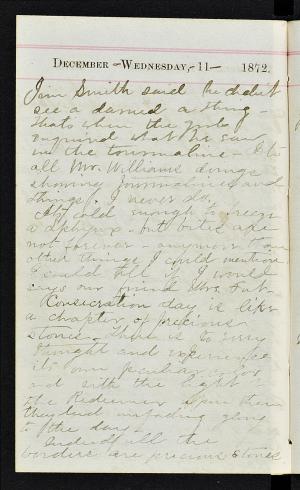 DECEMBER -WEDNESDAY,- 11- 1872.
Jim Smith said he didn't
see a darned a thing -
thats when the
enquired what he saw
in the tourmaline -
all Mr. Williams doings
showing tourmalines and
things. I never do,
cold enough to freeze
a zephyrus - but bites are
not forever - anymore than
other things I could mention
I could tell if I would
says our friend Mrs.
Consecration day is like
a chapter of precious
stones. There is to every
thought and experience
its own peculiar color
and with the light of
the Redeemer upon them
they lend unfading glory
to the day -
Indeed all the
borders are precious stones